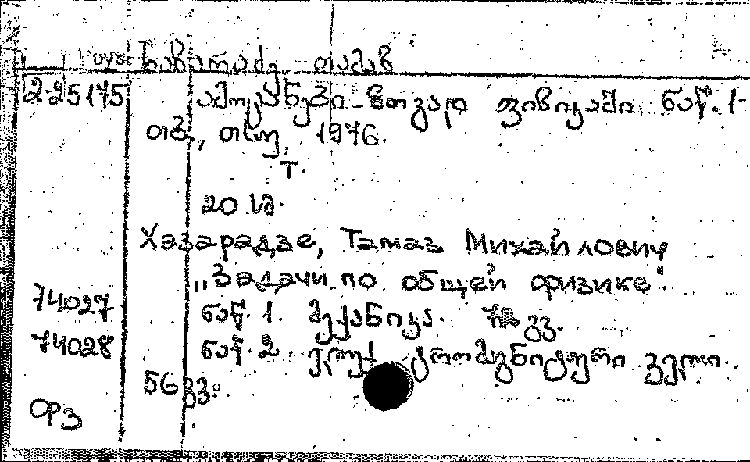 ხაზარაძე თამაზ
2-25175 ამოცანები ზოგად ფიზიკაში ნაწ. 1-
თბ., თსუ, 1976.
т.
20 სმ.
Хазарадзе, Тамаз Михайлович
"Задачи по общей физике".
74027 ნაწ. 1. მექანიკა. გვ.
74028 ნაწ. 2. ველი.
56 გვ.